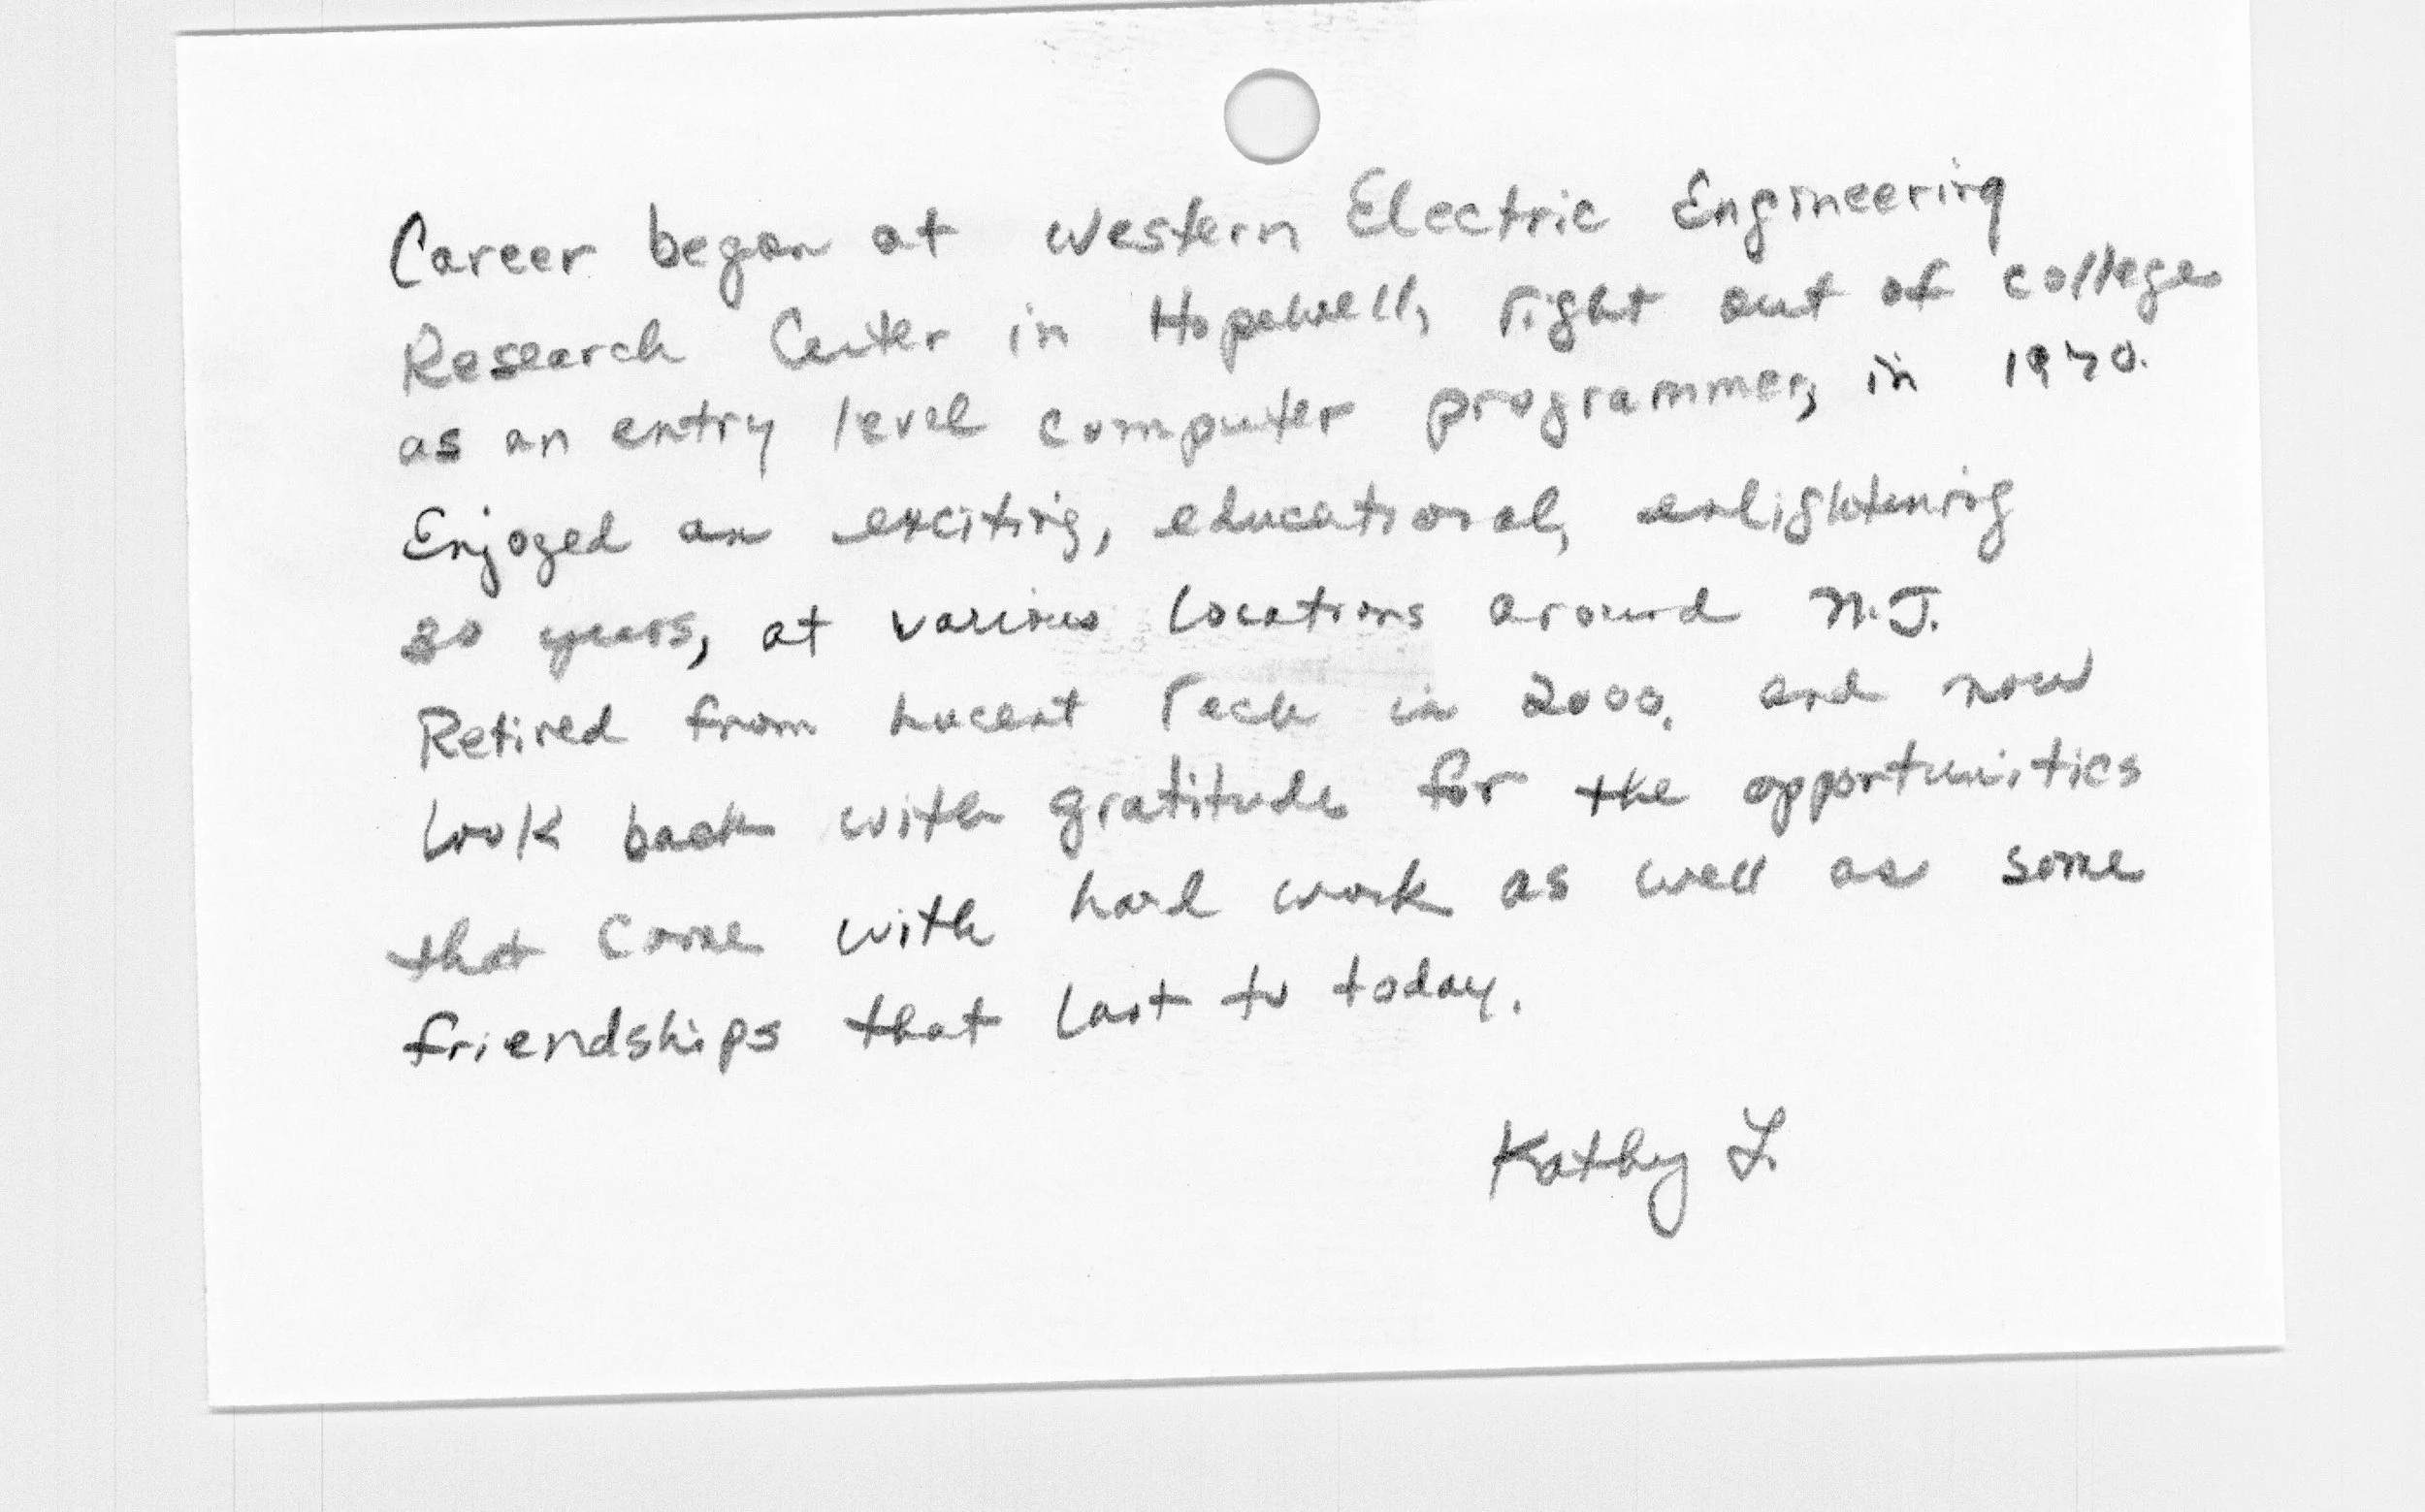 Career began at Western Electric Engineering
Research Center in Hopewell, right out of college
as an entry level computer programmer, in 1970.
Enjoyed an exciting, educational, enlightening
30 years, at various locations around N.J.
Retired from Lucent Tech in 2000, and now
look back with gratitude for the opportunities
that come with hard work as well as some
friendships that last to today.
Kathy L.